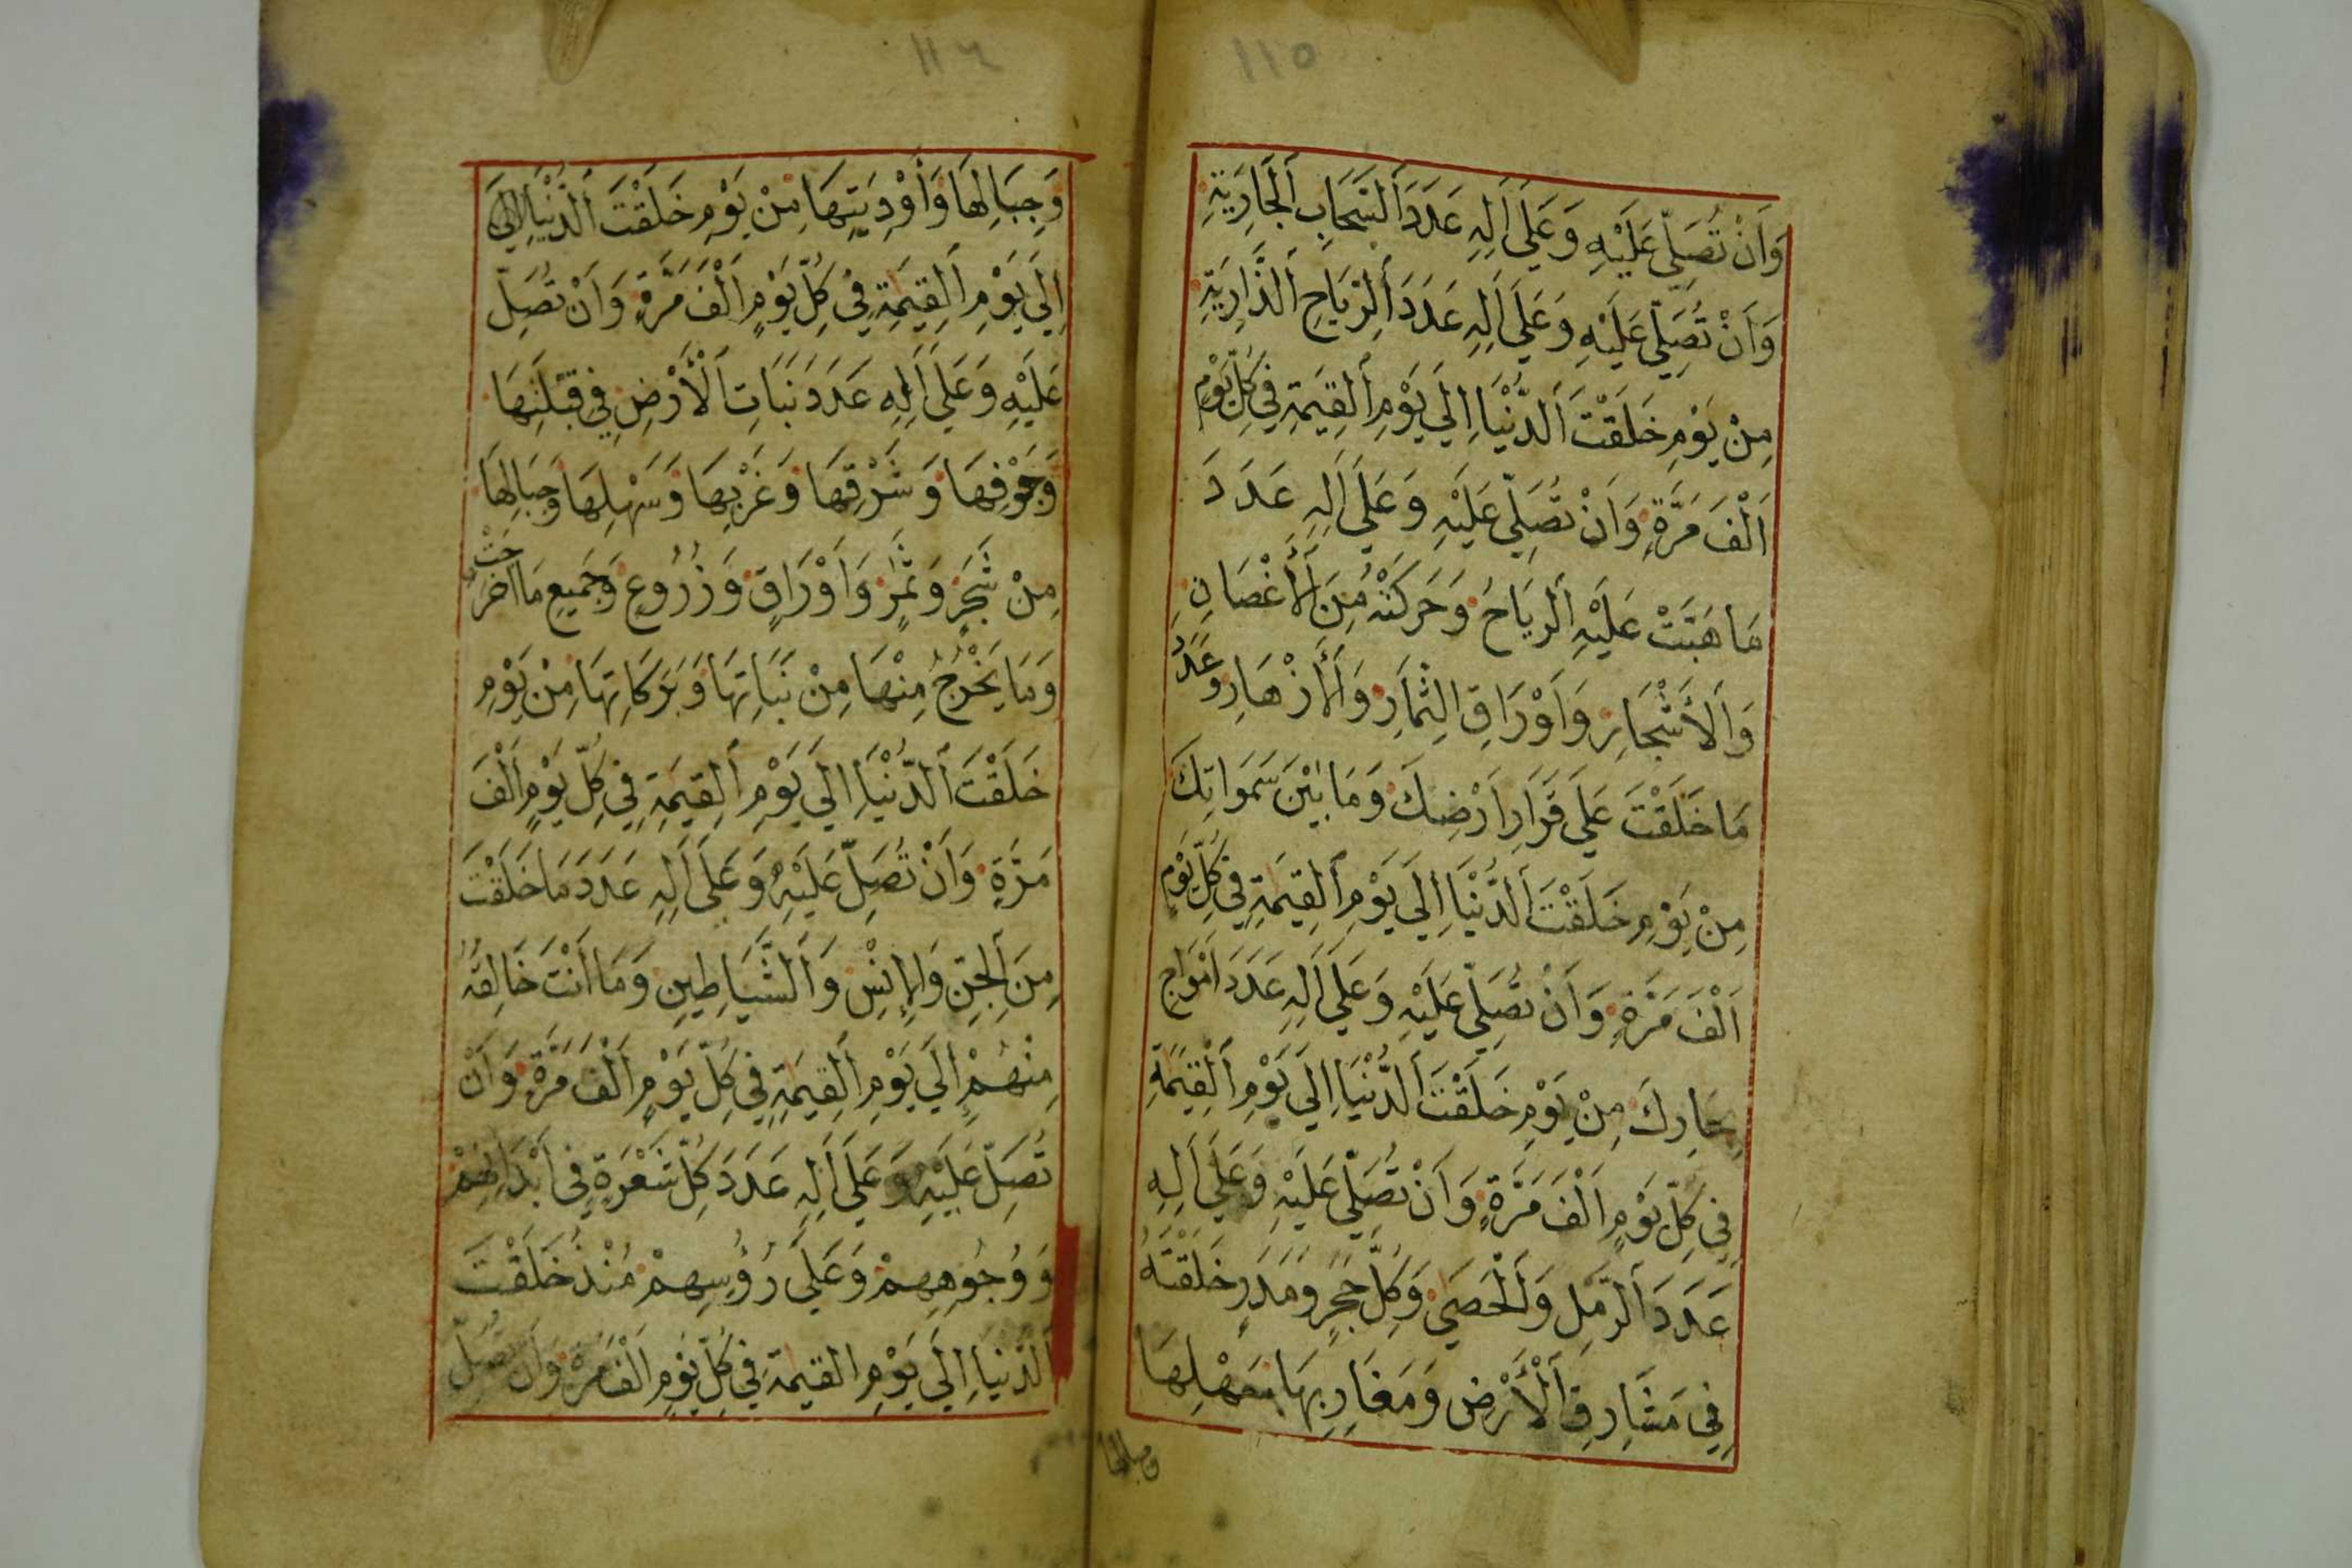 ١١٥
وَاَنْ تُصَلِّيَ عَلَيْهِ وَعَلَى اَلِهِ عَدَدَ اَلسَّحَابِ اَلْجَارِيَةِ
وَاَنْ تُصَلِّيَ عَلَيْهِ وَعَلَى اَلِهِ عَدَدَ اَلرِّيَاحِ اَلذَّارِيَةِ
مِنْ يَوْمِ خَلَقْتَ اَلدُّنْيَا اِلَي يَوْمِ اَلْقِيَمَةِ فِي كُلِّ يَوْمٍ
اَلْفَ مَرَّةٍ وَاَنْ تُصَلِّيَ عَلَيْهِ وَعَلَى اَلِهِ عَدَدَ
مَا هَبَّتْ عَلَيْهِ اَلرِّيَاحُ وَحَرَكَتْهُ مِنَ اَلْأَغْصَانِ
وَاَلْأَشْجَارِ وَاَوْرَاقِ الثِّمَارِ وَاَلْأَزْهَارِ وَعَدَدَ
مَا خَلَقْتَ عَلَي قَرَارِ اَرْضِكَ وَمَا بَيْنَ سَمَوَاتِكَ
مِنْ يَوْمِ خَلَقْتَ اَلدُّنْيَا اِلَي يَوْمِ اَلْقِيَمَةِ فِي كُلِّ يَوْمٍ
اَلْفَ مَرَّةٍ وَاَنْ تُصَلِّيَ عَلَيْهِ وَعَلَي اَلِهِ عَدَدَ اَمْوَاجِ
بِحَارِكَ مِنْ يَوْمِ خَلَقْتَ اَلدُّنْيَا اِلَي يَوْمِ اَلْقِيَمَةِ
فِي كُلِّ يَوْمٍ اَلْفَ مَرَّةٍ وَاَنْ تُصَلِّيَ عَلَيْهِ وَعَلَي اَلِهِ
عَدَدَ اَلرَّمْلِ وَاَلْحَصَي وَكُلِّ حَجَرٍ وَمَدَرٍ خَلَقْتَهُ
فِي مَشَارِقِ اَلْأَرْضِ وَمَغَارِبِهَا سَهْلِهَا
وجبالها
١١٦
وَجِبَالِهَا وَأَوْدِيَتِهَا مِنْ يَوْمِ خَلَقْتَ اَلدُّنْيَا اِلَي
اِلَي يَوْمِ اَلْقِيَمَةِ فِي كُلِّ يَوْمٍ اَلْفَ مَرَّةٍ وَاَنْ تُصَلِّ
عَلَيْهِ وَعَلَي اَلِهِ عَدَدَ نَبَاتِ اَلْأَرْضِ فِي قِبْلَتِهَا
وَجَوْفِهَا وَشَرْقِهَا وَغَرْبِهَا وَسَهْلِهَا وَجِبَالِهَا
مِنْ شَجَرٍ وَثَمَرٍ وَاَوْرَاقٍ وَزُرُوعٍ وَجَمِيعِ مَا اَخْرَجَتْ
وَمَا يَخْرُجُ مِنْهَا مِنْ نَبَاتِهَا وَبَرَكَاتِهَا مِنْ يَوْمِ
خَلَقْتَ اَلدُّنْيَا اِلَي يَوْمِ اَلْقِيَمَةِ فِي كُلِّ يَوْمٍ اَلْفَ
مَرَّةٍ وَاَنْ تُصَلِّ عَلَيْهِ وَعَلَي اَلِهِ عَدَدَ مَا خَلَقْتَ
مِنَ اَلْجِنِّ وَالْإِنْسِ وَاَلشَّيَاطِينِ وَمَا اَنْتَ خَالِقُهُ
مِنْهُمْ اِلَي يَوْمِ اَلْقِيَمَةِ فِي كُلِّ يَوْمٍ اَلْفَ مَرَّةٍ وَاَنْ
تُصَلِّ عَلَيْهِ وَعَلَي اَلِهِ عَدَدَ كُلِّ شَعْرَةٍ فِي اَبْدَانِهِمْ
وَوُجُوهِهِمْ وَعَلَي رُؤُسِهِمْ مُنْذُ خَلَقْتَ
اَلدُّنْيَا اِلَي يَوْمِ الْقِيمَةِ فِي كُلِّ يَوْمٍ اَلْفَ مَرَّةٍ وَاَنْ تُصَلِّ